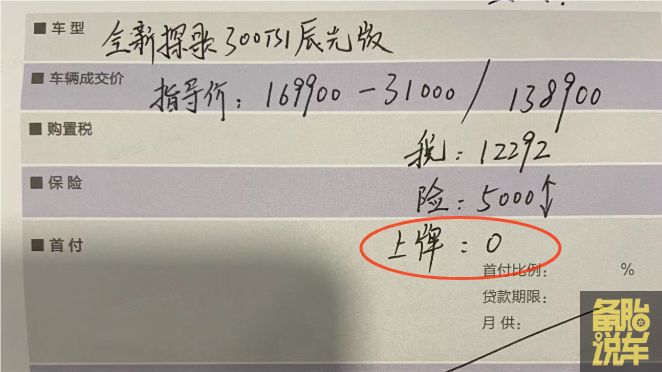 ■ 车型 全新探歌300TSI辰光版
■ 车辆成交价 指导价：169900-31000/138900
■ 购置税
税：12292
■ 保险 险：5000↕
■ 首付 上牌：0
首付比例： %
贷款期限：
月供：
备胎说车